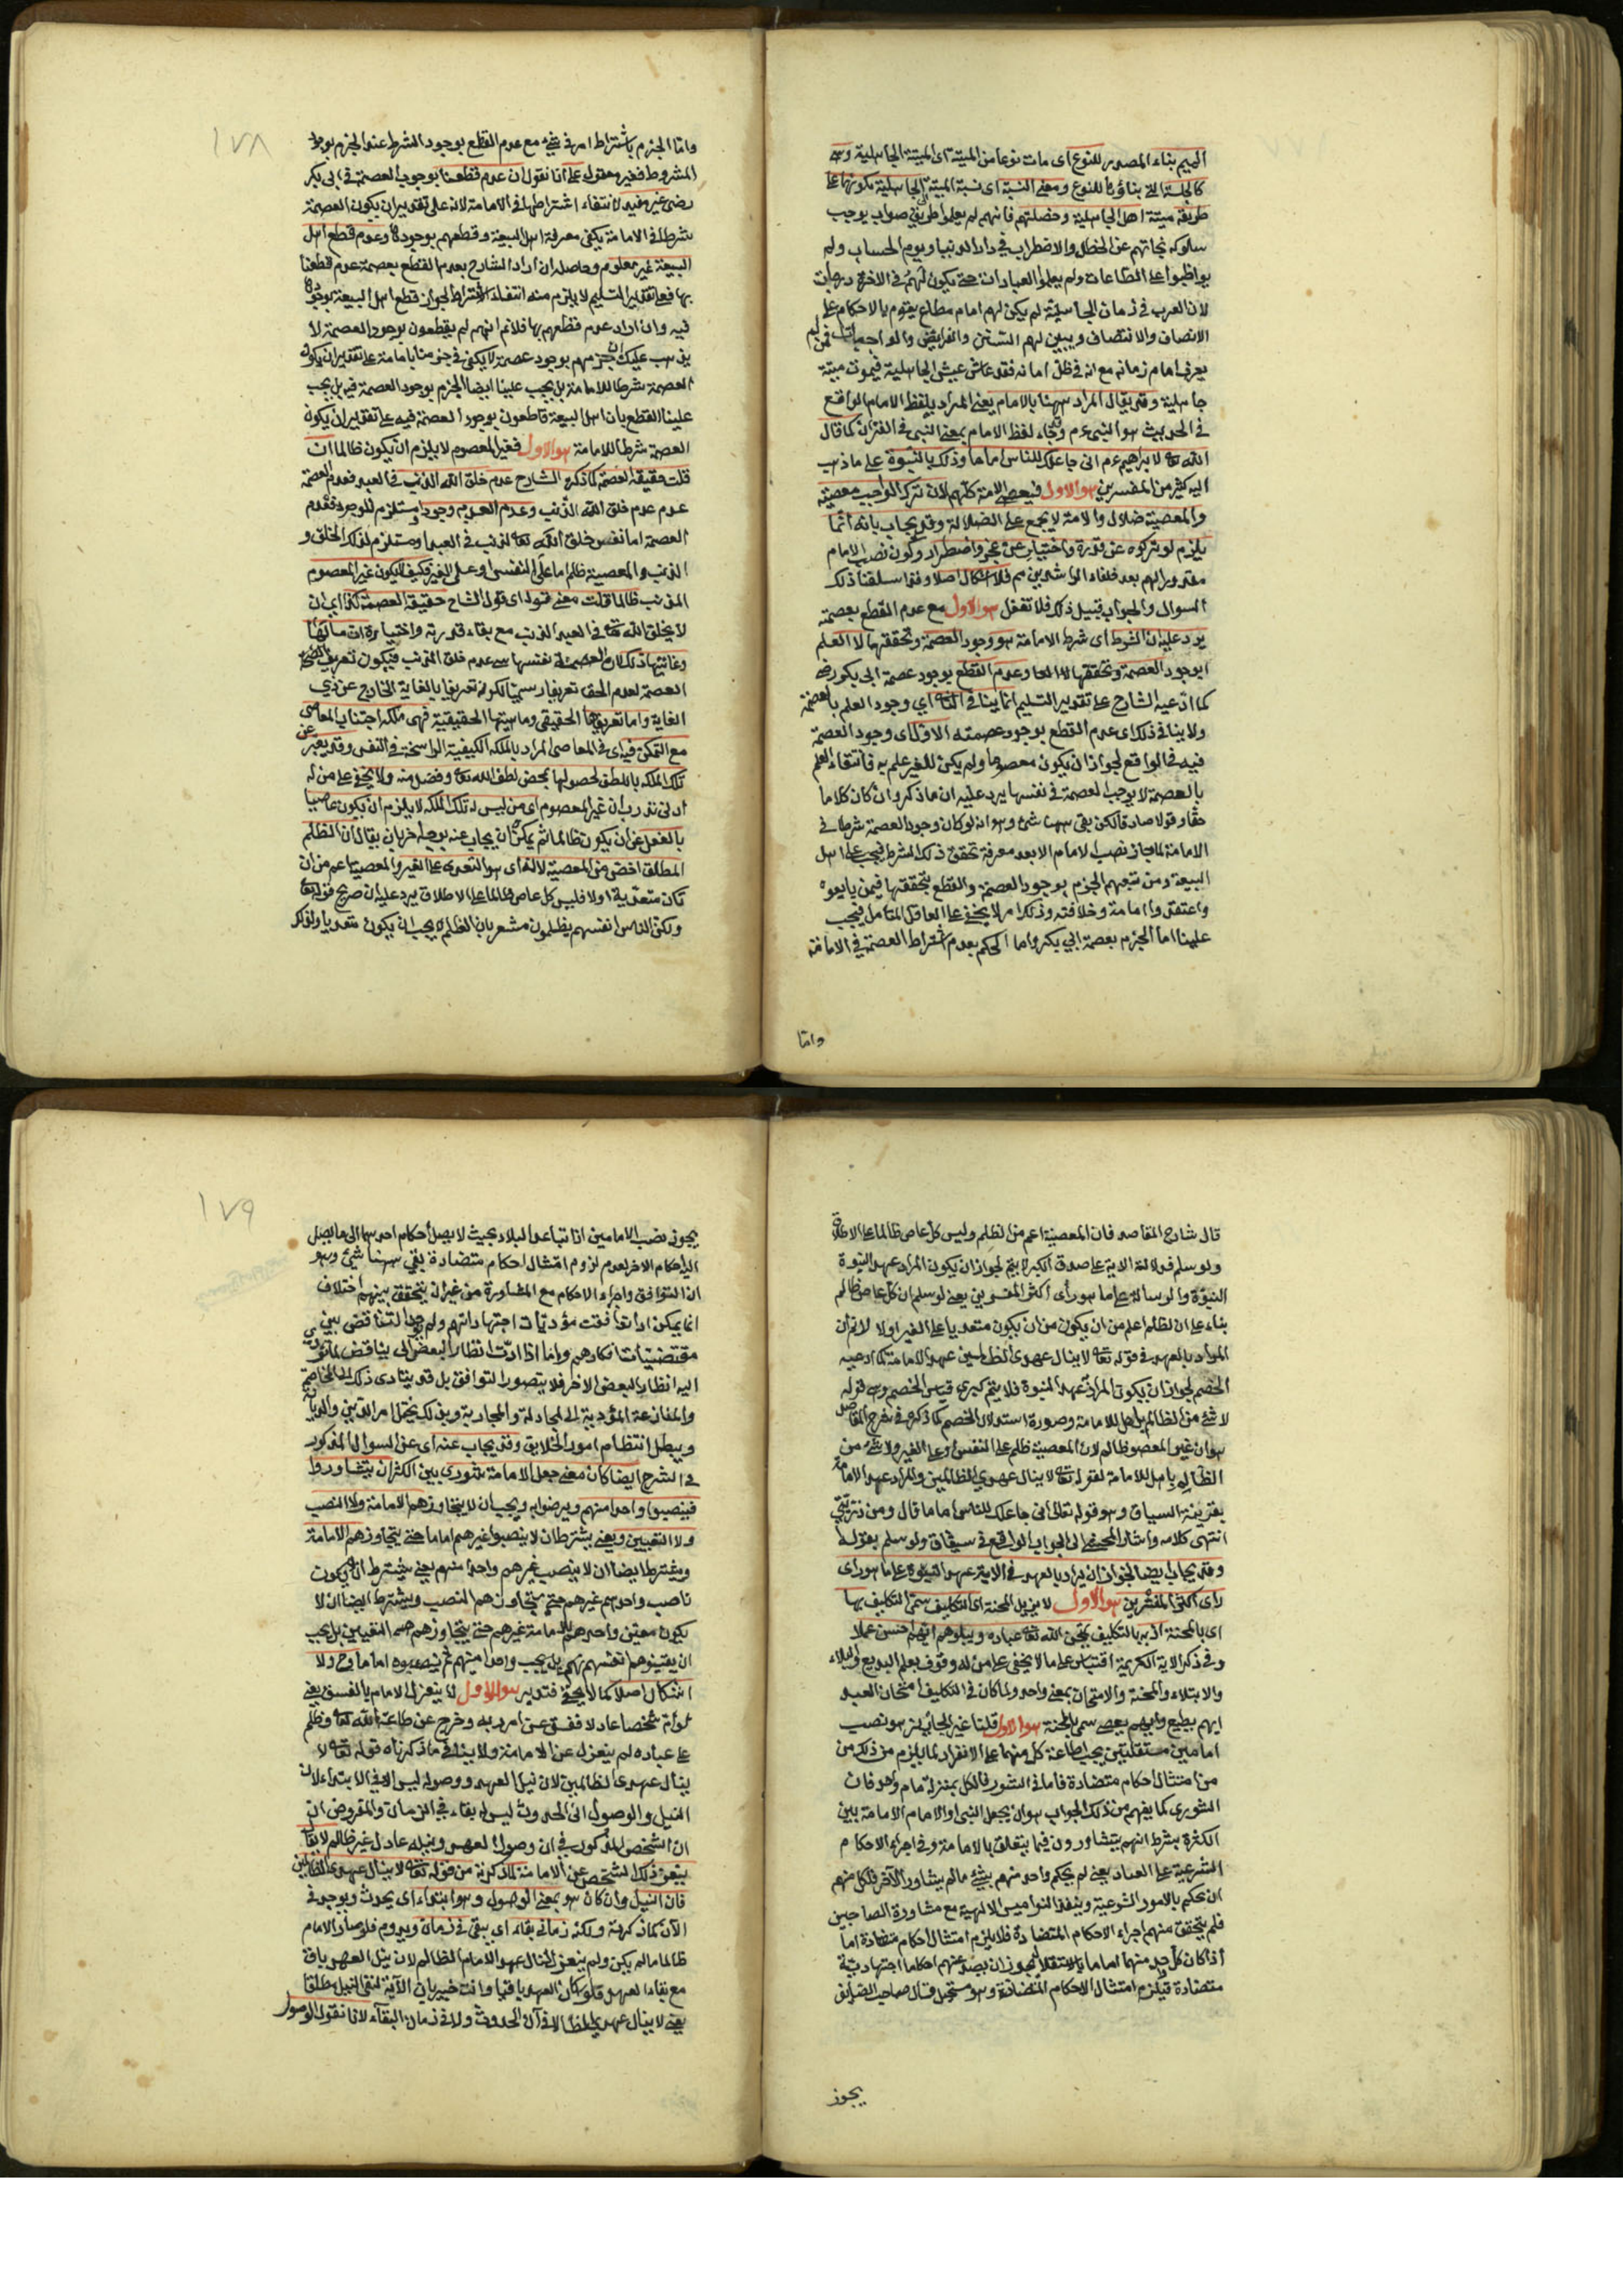 الميم بناء المصدر للنوع اى مات نوعا من الميتة اى الميتة الجاهلية وهى
كالجلسة التى بناؤها للنوع ومعنى النسبة اى نسبة الميتة الى الجاهلية بكونها على
طريقة ميتة اهل الجاهلية وخصلتهم فانهم لم يعلموا طريق صواب يوجب
سلوكه نجاتهم عن الخطل والاضطراب فى دار الدنيا ويوم الحساب ولم
يواظبوا على الطاعات ولم يعلموا العبادات حتى يكون لهم فى الاخرة درجات
لان العرب فى زمان الجاهلية لم يكن لهم امام مطاع يقوم بالاحكام على
الانصاف والانتصاف ويبين لهم السنن والفرايض والواجبات فمن لم
يعرف امام زمانه مع انه فى ظل امانه فقد عاش عيش الجاهلية فيموت ميتة
جاهلية وقد يقال المراد ههنا بالامام يعنى المراد بلفظ الامام الواقع
فى الحديث هو النبى عم وقد جاء لفظ الامام بمعنى النبى فى القران كما قال
الله تعا لابراهيم عم انى جاعلك للناس اماما وذلك بالنبوة على ما ذهب
اليه كثير من المفسرين هو الاول فيعصى الامة كلهم لان ترك الواجب معصية
والمعصية ضلال والامة لا يجمع على الضلالة وقد يجاب بانه انما
يلزم لو تركوه عن قدرة واختيار لا عن عجز واضطرار وكون نصب الامام
مقدورا لهم بعد خلفاء الراشدين مم فلا اشكال اصلا وقد اسلفنا ذلك
السوال والجواب قبيل ذلك فلا تغفل هو الاول مع عدم القطع بعصمته
يرد عليه ان الشرط اى شرط الامامة هو وجود العصمة وتحققها لا العلم
بوجود العصمة وتحققها وعدم القطع بوجود عصمة ابى بكر رضه
كما ادعيه الشارح على تقدير التسليم انما ينافى الثانى اى وجود العلم بالعصمة
ولا ينافى ذلك اى عدم القطع بوجود عصمته الاول اى وجود العصمة
فيه فى الواقع لجواز ان يكون معصوما ولم يكن للغير علم به فانتفاء العلم
بالعصمة لا يوجب العصمة فى نفسها يرد عليه ان ما ذكر وان كان كلاما
حقا وقولا صادقا لكن بقى ههنا شئ وهو انه لو كان وجود العصمة شرطا فى
الامامة لما جاز نصب الامام الا بعد معرفة تحقق ذلك الشرط فيجب على اهل
البيعة ومن تبعهم الجزم بوجود العصمة والقطع بتحققها فيمن بايعوه
واعتقدوا امامة وخلافته وذلك امر لا يخفى على العاقل المتامل فيجب
علينا اما الجزم بعصمة ابى بكر واما الحكم بعدم اشتراط العصمة فى الامامة
واما
١٧٨
واما الجزم باشتراط امر فى شئ مع عدم القطع بوجود الشرط عند الجزم بوجود
المشروط فغير معقول على انا نقول ان عدم قطعنا بوجوب العصمة فى ابى بكر
رضى غير مفيد لانتفاء اشتراطها فى الامامة لانه على تقدير ان يكون العصمة
شرطا فى الامامة يكفى معرفة اهل البيعة وقطعهم بوجودها وعدم قطع اهل
البيعة غير معلوم وحاصله ان اراد الشارح بعدم القطع بعصمة عدم قطعنا
بها فعلى تقدير التسليم لا يلزم منه انتفاء الاشتراط لجواز قطع اهل البيعة بوجودها
فيه وان اراد عدم قطعهم بها فلا نم انهم لم يقطعون بوجود العصمة لا
يذهب عليك ان جزمهم بوجود عصمة لا يكفى فى جزمنا بامامة على تقدير ان يكون
العصمة شرطا للامامة بل يجب علينا ايضا الجزم بوجود العصمة فيه بل يجب
علينا القطع بان اهل البيعة قاطعون بوجود العصمة فيه على تقدير ان يكون
العصمة شرطا للامامة هو الاول فغير المعصوم لا يلزم ان يكون ظالما ان
قلت حقيقة العصمة كما ذكره الشارح عدم خلق الله الذنب فى العبد فعدم العصمة
عدم عدم خلق الله الذنب وعدم العدم وجود او مستلزم للوجود فعدم
العصمة اما نفس خلق الله تعا لذنب فى العبد او مستلزم لذلك الخلق و
الذنب والمعصية ظلم اما على النفس او على الغير فكيف لا يكون غير المعصوم
المذنب ظالما قلت معنى قوله اى قول الشارح حقيقة العصمة كذا اى ان
لا يخلق الله تعا فى العبد الذنب مع بقاء قدرته واختياره ان مآلها
وغايتها ذلك لان العصمة فى نفسها هى عدم خلق الذنب فيكون تعريف العصمة
العصمة لعدم الخلق تعريفا رسميا لكونه تعريفا بالغاية الخارج عن ذى
الغاية واما تعريفها الحقيقى وماهيتها الحقيقية فهى ملكة اجتناب المعاصى
مع التمكن فيه اى فى المعاصى المراد بالملكة الكيفية الراسخة فى النفس وقد يعبر عن
تلك الملكة باللطف لحصولها بمحض لطف الله تعا وفضل منه ولا يخفى على من له
ادنى تدرب ان غير المعصوم اى من ليس له تلك الملكة لا يلزم ان يكون عاصيا
بالفعل عن ان يكون ظالما ثم يمكن ان يجاب عنه بوجه اخر بان يقال ان الظلم
المطلق اخص من المعصية لانه اى هو التعدى على الغير والمعصية اعم من ان
تكون متعدية اولا فليس كل عاص ظالما على الاطلاق يرد عليه ان صريح قوله تعا
ولكن الناس انفسهم يظلمون مشعر بان الظلم لا يجب ان يكون متعديا ولذلك
قال شارح المقاصد فان المعصية اعم من الظلم وليس كل عاص ظالما على الاطلاق
ولو سلم فدلالة الاية على صدق الكبرى لا يتم لجواز ان يكون المراد عهد النبوة
النبوة والرسالة على ما هو رأى اكثر المفسرين يعنى لو سلم ان كل عاص ظالم
بناء على ان الظلم اعم من ان يكون من ان يكون متعديا على الغير اولا لا نم ان
المراد بالعهد فى قوله تعا لا ينال عهدى الظالمين عهد الامامة كما ادعيه
الخصم لجواز ان يكون المراد عهد النبوة فلا يتم كبرى قياس الخصم وهى قوله
لا شئ من الظالم باهل للامامة وصورة استدلال الخصم كما ذكره فى شرح المقاصد
هو ان غير المعصوم ظالم لان المعصية ظلم على النفس او على الغير ولا شئ من
الظالم باهل للامامة لقوله تعا لا ينال عهدى الظالمين والمراد عهد الامامة
بقرينة السياق وهو قوله تعالى انى جاعلك للناس اماما قال ومن ذريتى
انتهى كلامه واشار المحشى الى الجواب الواقع فى سياق ولو سلم بقوله
وقد يجاب ايضا لجواز ان يراد بالعهد فى الاية عهد النبوة على ما هو رأى
رأى اكثر المفسرين هو الاول لا يزيل المحنة اى التكليف سمى التكليف بها
اى بالمحنة اذ به بالتكليف يمتحن الله تعا عباده ويبلوهم ايهم احسن عملا
وفى ذكر الاية الكريمة اقتباس على ما لا يخفى على من له وقوف بعلم البديع والبلاء
والابتلاء والمحنة والامتحان بمعنى واحد ولما كان فى التكليف امتحان العبد
ايهم يطيع وايهم يعصى سمى بالمحنة هو الاول قلنا غير الجائز هو نصب
امامين مستقلين يجب اطاعة كل منهما على الانفراد لما يلزم من ذلك من
من امتثال احكام متضادة فاما فى الشورى فالكل بمنزلة امام واحد فان
الشورى كما يفهم من ذلك الجواب هو ان يجعل النبى او الامام الامامة بين
الكثرة بشرط انهم يتشاورون فيما يتعلق بالامامة وفى اجراء الاحكام
الشرعية على العباد يعنى لم يحكم واحد منهم بشئ مالم يشاور الآخر فلكل منهم
ان يحكم بالامور الشرعية وينفذ النواميس الالهية مع مشاورة الصاحبين
فلم يتحقق منهم اجراء الاحكام المتضادة فلا يلزم امتثال احكام متضادة اما
اذا كان كل واحد منهما اماما بالاستقلال فيجوز ان يصدر عنهم احكاما اجتهادية
متضادة فيلزم امتثال الاحكام المتضادة وهو مستحيل وقال صاحب الصحايف
يجوز
١٧٩
يجوز نصب الامامين اذا تباعد البلاد بحيث لا يصل احكام احدهما الى ما يصل
اليه احكام الاخر لعدم لزوم امتثال احكام متضادة بقى ههنا شئ وهو
ان التوافق واجراء الاحكام مع المشاورة من غير ان يتحقق بينهم اختلاف
انما يمكن اذا توافقت مؤديات اجتهاداتهم ولم يوجد التناقض بين
مقتضيات افكارهم واما اذا ادت انظار البعض الى ما يناقض
اليه انظار البعض الاخر فلا يتصور التوافق بل قد يتادى ذلك الى التخاصم
والمنازعة المؤدية الى المجادلة والمحاربة وبذلك يختل امر الدين والديانة
ويبطل انتظام امور الخلايق وقد يجاب عنه اى عن السوال المذكور
فى الشرح ايضا كان معنى جعل الامامة شورى بين الكثران يتشاوروا
فينصبوا واحدا منهم ويرضوا به ويجب ان لا يتجاوزهم الامامة ولا النصب
ولا التعيين ويعنى بشترطان لا ينصبوا غيرهم اماما حتى يتجاوزهم الامامة
ويشترط ايضا ان لا ينصب غيرهم واحدا منهم يعنى يشترط ان لا يكون
ناصب واحدهم غيرهم حتى يتجاوزهم النصب ويشترط ايضا ان لا
يكون معين واحدهم للامامة غيرهم حتى يتجاوزهم التعيين بل يجب
ان يعينوهم انفسهم بل يجب واحدا منهم ثم ينصبوه اماما وح ولا
اشكال اصلا كما لا يخفى فتدبر هو الاول لا ينعزل الامام بالفسق يعنى
لو ام شخصا عادلا ففسق عن امر ربه وخرج عن طاعة الله تعا وظلم
على عباده لم ينعزل عن الامامة ولا ينافى ما ذكرناه قوله تعا لا
ينال عهدى الظالمين لان نيل العهد ووصوله ليس الا فى الابتداء لان
النيل والوصول انى الحدوث ليس له بقاء فى الزمان والمفروض ان
ان الشخص المذكور فى ان وصول العهد ونيله عادل غير ظالم لا يقال
ينعزل ذلك الشخص عن الامامة لما ذكرته من قوله تعا لا ينال عهدى الظالمين
فان النيل وان كان هو بمعنى الوصول وهو ابتداء اى يحدث ويوجد فى
الآن كما ذكرته ولكنه زمانى بقاء اى يبقى فى زمان ويدوم فلو صار الامام
ظالما ما لم يكن ولم ينعزل لنال عهد الامام الظالم لان نيل العهد باق
مع بقاء العهد فلو كان العهد باقيا وانت خبير بان الآية لنفى النيل مطلقا
يعنى لا ينال عهدى الظالم لا فى آن الحدوث ولا فى زمان البقاء لانا نقول الوصول